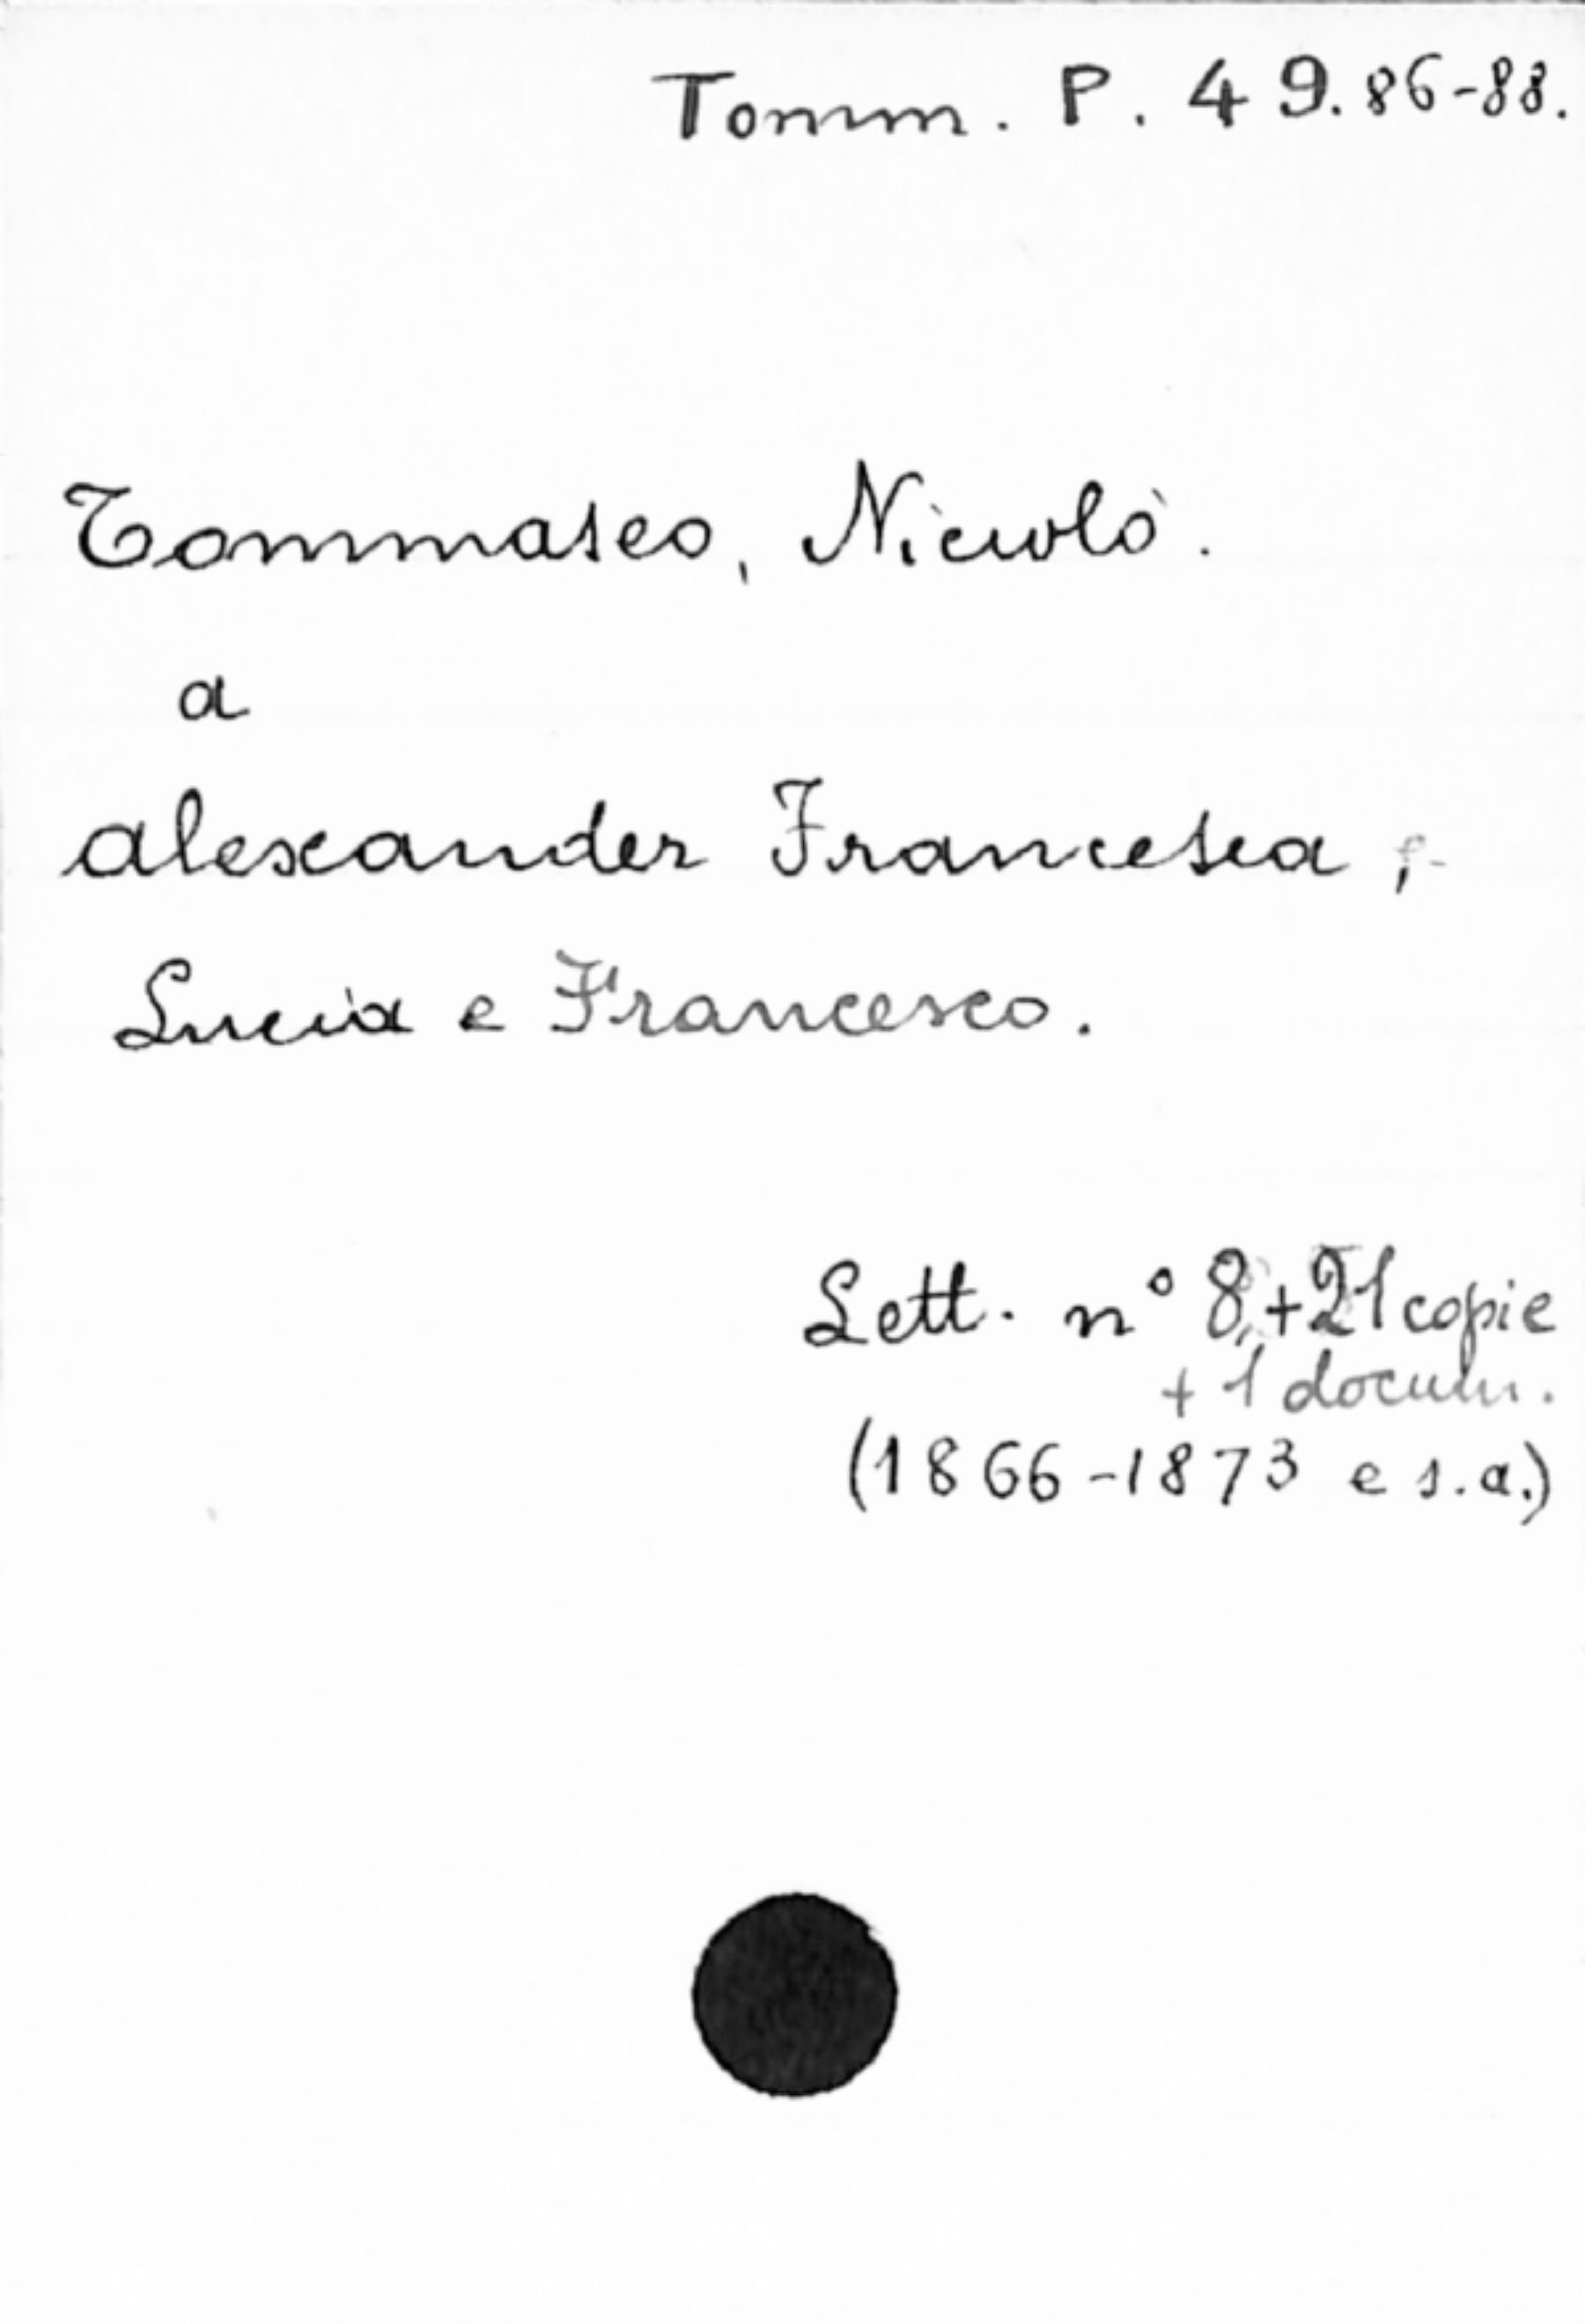 Tomm. P. 49.86-88.
Tommaseo, Niccolò.
a
Alexander Francesca,
Lucia e Francesco.
Lett. n° 8,+21 copie
+ 1 docum.
(1866-1873 e s.a.)